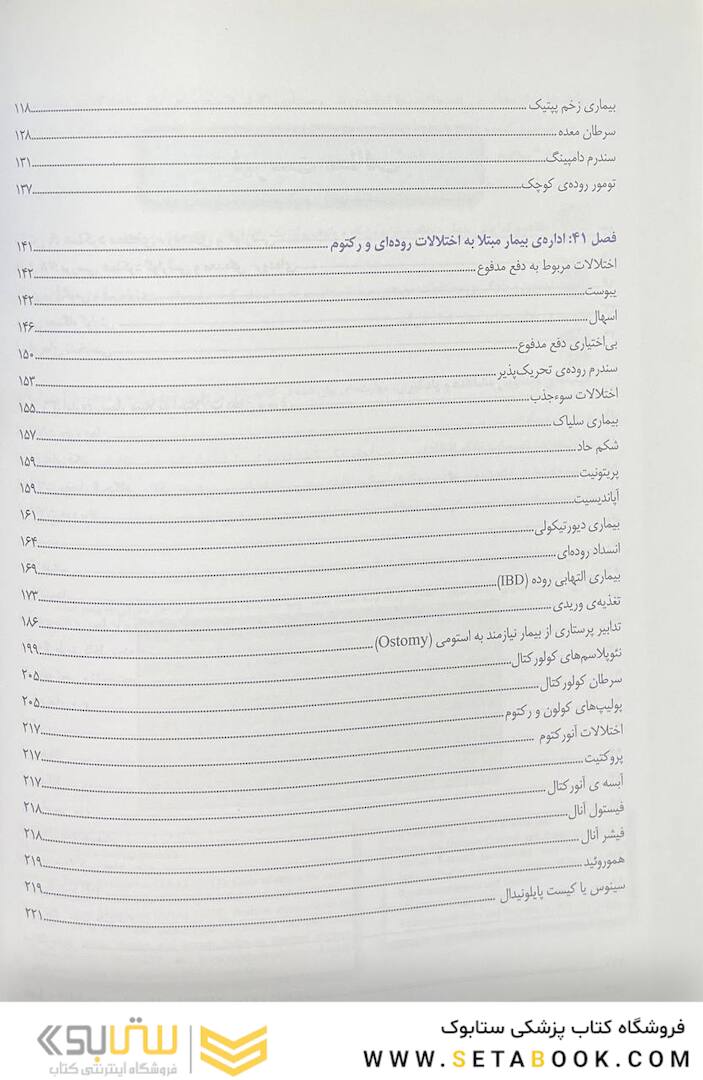 بیماری زخم پپتیک ........ ۱۱۸
سرطان معده ........ ۱۲۸
سندرم دامپینگ ........ ۱۳۱
تومور روده‌ی کوچک ........ ۱۳۷
فصل ۴۱: اداره‌ی بیمار مبتلا به اختلالات روده‌ای و رکتوم ........ ۱۴۱
اختلالات مربوط به دفع مدفوع ........ ۱۴۲
یبوست ........ ۱۴۲
اسهال ........ ۱۴۶
بی‌اختیاری دفع مدفوع ........ ۱۵۰
سندرم روده‌ی تحریک‌پذیر ........ ۱۵۳
اختلالات سوءجذب ........ ۱۵۵
بیماری سلیاک ........ ۱۵۷
شکم حاد ........ ۱۵۹
پریتونیت ........ ۱۵۹
آپاندیسیت ........ ۱۶۱
بیماری دیورتیکولی ........ ۱۶۴
انسداد روده‌ای ........ ۱۶۹
بیماری التهابی روده (IBD) ........ ۱۷۳
تغذیه‌ی وریدی ........ ۱۸۶
تدابیر پرستاری از بیمار نیازمند به استومی (Ostomy) ........ ۱۹۹
نئوپلاسم‌های کولورکتال ........ ۲۰۵
سرطان کولورکتال ........ ۲۰۵
پولیپ‌های کولون و رکتوم ........ ۲۱۷
اختلالات آنورکتوم ........ ۲۱۷
پروکتیت ........ ۲۱۷
آبسه ی آنورکتال ........ ۲۱۸
فیستول آنال ........ ۲۱۸
فیشر آنال ........ ۲۱۹
هموروئید ........ ۲۱۹
سینوس یا کیست پایلونیدال ........ ۲۲۱
فروشگاه کتاب پزشکی ستابوک
WWW.SETABOOK.COM
ستابوک
فروشگاه اینترنتی کتاب